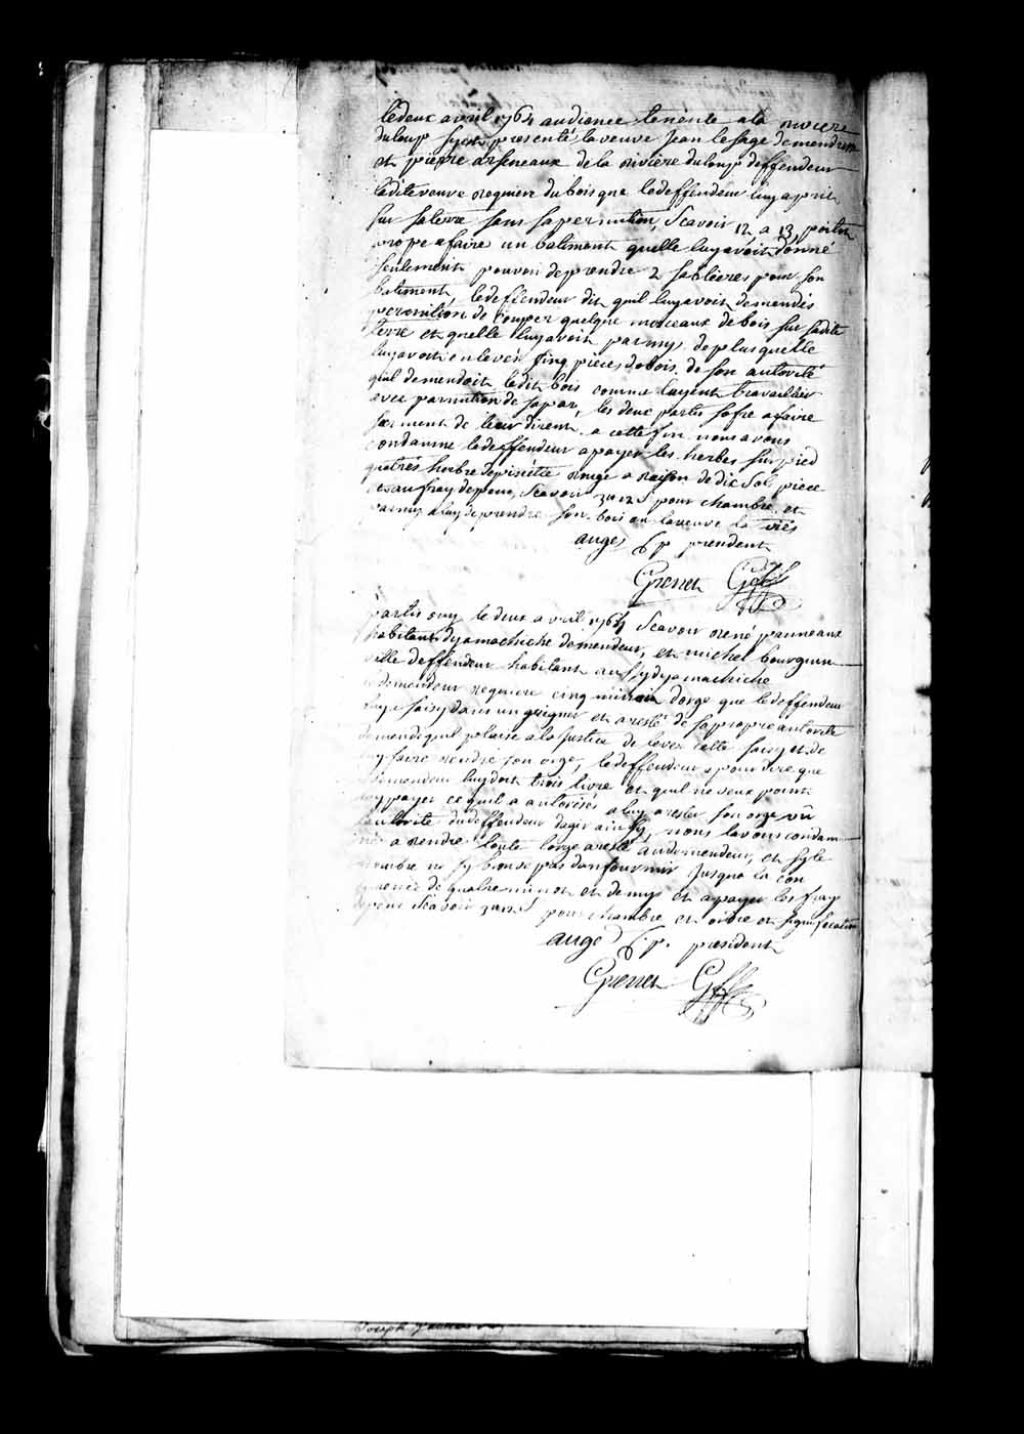 le deux avril 1764 audience tenente a la riviere
du loup syest presenté la veuve jean lesage demendresse
et pierre arseneaux de la riviere du loup deffendeur
ladite veuve requier du bois que le deffendeur luy a pris
sur sa terre sans sa permition, scavoir 12 a 13
prope a faire un batiment quelle luy avoit donné
seulement pouvoir de prendre 2 sablieres pour son
batiment, le deffendeur dit quil luy avoit demendés
permition de couper quelque morceaux de bois sur sadite
terre et quelle luy avoit parmy, de plus quelle
luy avoit enlevér sinq pieces de bois de son autorité
quil demendoit ledit bois comme layent travaillér
avec parmition de sa par, les deux partis sofre a faire
serment de leur dirent a cette fin nous avons
condamné le deffendeur a payer les herbes sur pied
quatres herbre depinette rouge a raison de dic sols piece
et au fray scavoir pour chambre et
parmy a luy de prendre son bois ou la veuve la
auge f. p. prendent
Grenet Gff
partis ouy le deux avril 1764 scavoir rené panneaux
habitant dyamachiche demendeur, et michel bourgun
ville deffendeur habitant aussy dyamachiche
le demendeur requiere cinq minots dorge que le deffendeur
luy a saisy dans un grigner et aresté de sa propre autorité
demende quil plaise a la justice de lever celle saisy et de
luy faire rendre son orge, le deffendeur a pour dire que
le demendeur luy doit trois livre et quil ne veux point
luy payer ce quil a autorisés a luy arester son orge vû
lautorité du deffendeur dagir ainsy, nous lavons condam
nér a rendre toute lorge aresté au demendeur, et sy le
nombre ne sy trouve pas dan fournir jusqua la con
curence de quatre minot et demy et a payer les fray
scavoir pour chambre et ordre et signification
auge f. p. president
Grenet Gff
Joseph